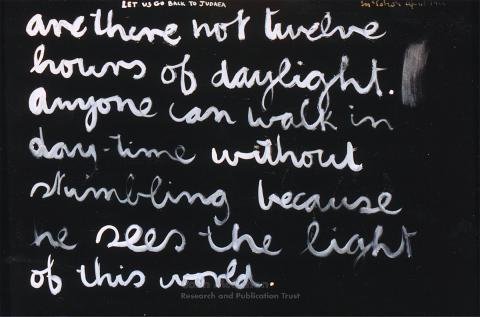 LET US GO BACK TO JUDAEA
McCahon April
are there not twelve
hours of daylight.
anyone can walk in
day-time without
stumbling because
he sees the light
of this world.
Research and Publication Trust